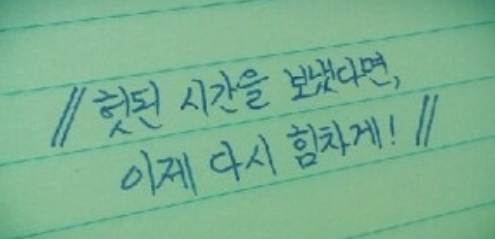 // 헛된 시간을 보냈다면,
이제 다시 힘차게! //